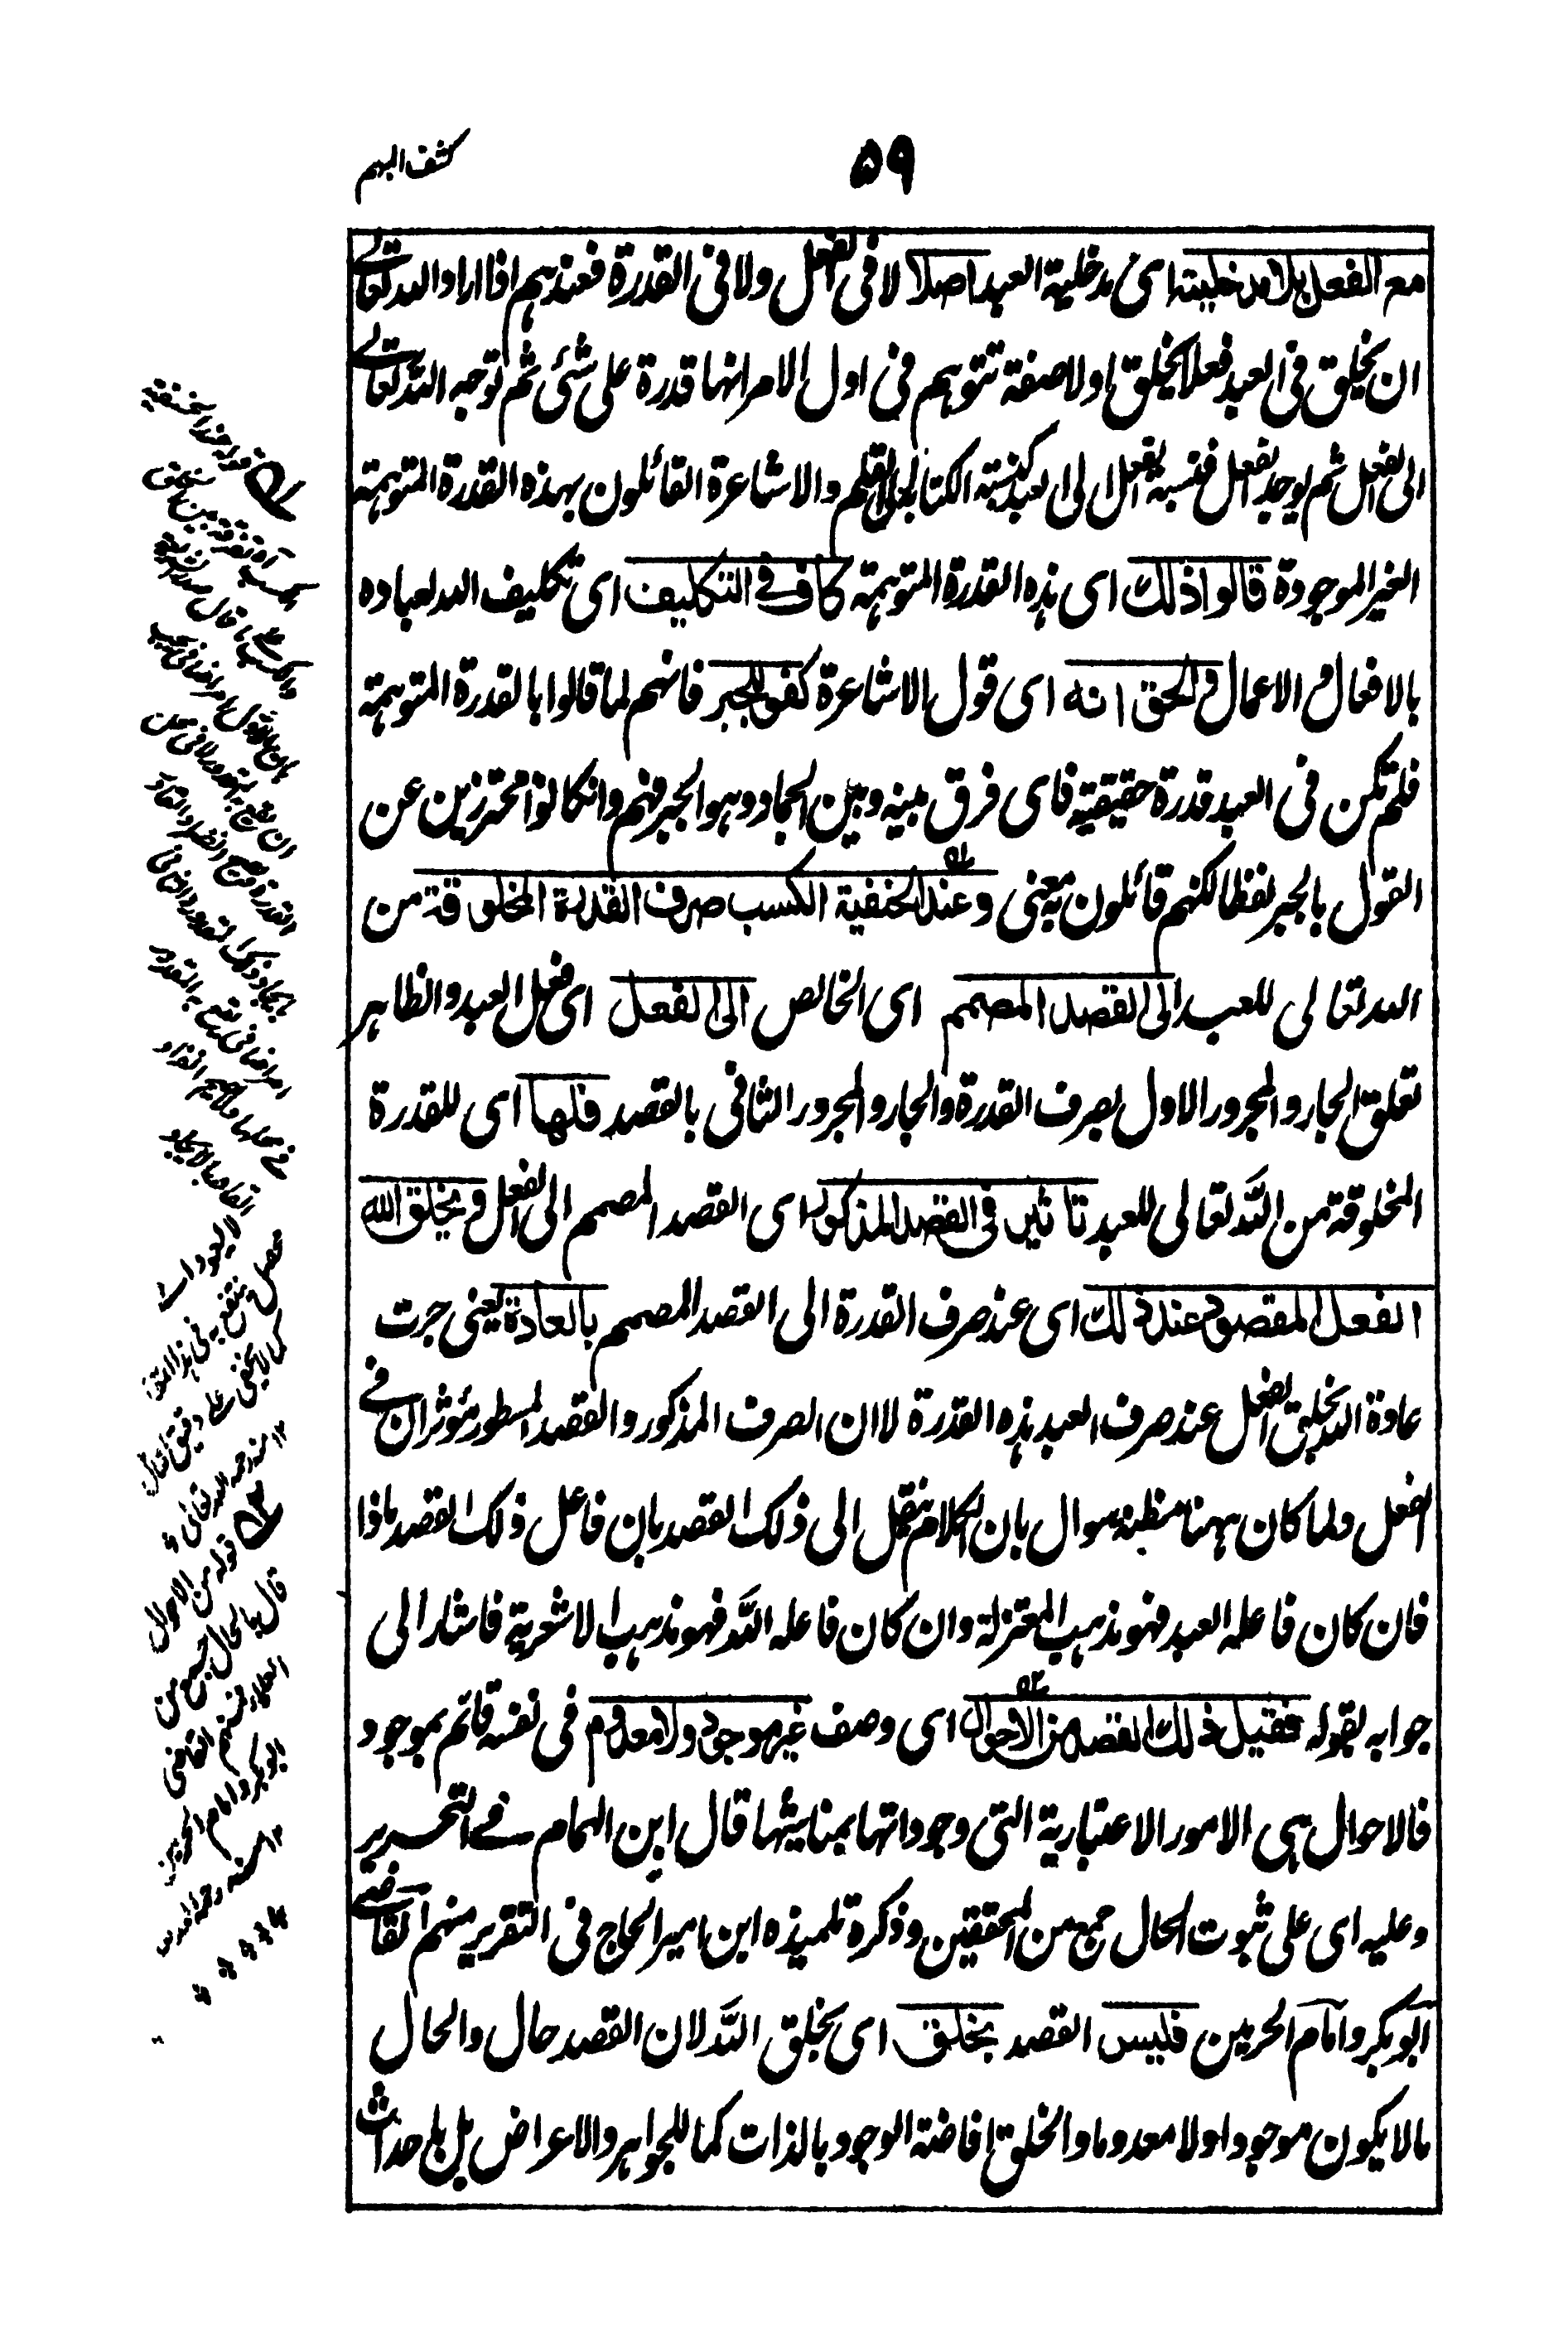 ٥٩
كشف المبهم
مع الفعل بلا مدخلية اى مدخلية العبد اصلا لا فى الفعل ولا فى القدرة فعندهم اذا اراد الله تعالے
ان يخلق فى العبد فعلا يخلق اولا صفة تتوهم فى اول الامر انها قدرة على شئ ثم توجه الله تعالے
الى الفعل ثم يوجد الفعل فنسبة الفعل الى العبد كنسبة الكتابة الى القلم والاشاعرة القائلون بهذه القدرة المتوهمة
الغير الموجودة قالوا ذلك اى هذه القدرة المتوهمة كاف فى التكليف اى تكليف الله لعباده
بالافعال والاعمال والحق انه اى قول الاشاعرة كفو للجبر فانهم لما قالوا بالقدرة المتوهمة
فلم تكن فى العبد قدرة حقيقية فاى فرق بينه وبين الجماد وهو الجبر فهم وان كانوا محترزين عن
القول بالجبر لفظا لكنهم قائلون به معنى وعند الحنفية الكسب صرف القدرة المخلوقة من
الله تعالى للعبد الى القصد المصمم اى الخالص الى الفعل اى فعل العبد والظاهر
تعلق الجار والمجرور الاول بصرف القدرة والجار والمجرور الثانى بالقصد فلها اى للقدرة
المخلوقة من الله تعالى للعبد تاثير فى القصد المذكور اى القصد المصمم الى الفعل ويخلق الله
الفعل المقصود عند ذلك اى عند صرف القدرة الى القصد المصمم بالعادة يعنى جرت
عادة الله بخلق الفعل عند صرف العبد هذه القدرة لا ان الصرف المذكور والقصد المسطور مؤثران فے
الفعل ولما كان ههنا مظنة سوال بان الكلام ينتقل الى ذلك القصد بان فاعل ذلك القصد ماذا
فان كان فاعله العبد فهو مذهب المعتزلة وان كان فاعله الله فهو مذهب الاشعرية فاشار الى
جوابه بقوله فقيل ذلك القصد من الاحوال اى وصف غير موجود ولا معدوم فى نفسه قائم بموجود
فالاحوال هى الامور الاعتبارية التى وجوداتها بمناشيها قال ابن الهمام فے التحرير
وعليه اى على ثبوت الحال جمع من المحققين وذكره تلميذه ابن امير الحاج فى التقرير منهم القاضے
ابو بكر وامام الحرمين فليس القصد بخلق اى بخلق الله لان القصد حال والحال
مالا يكون موجودا ولا معدوما والخلق افاضة الوجود بالذات كما للجواهر والاعراض بل احداث
قوله عند الحنفية
القدرة
لا يعود
كما لا يخفى على دقيق
١٢ منه رحمه الله تعالى
قوله من الاحوال
قال بالحال جمع من
العلماء منهم القاضى
ابو بكر وامام الحرمين
١٢ منه رحمه الله